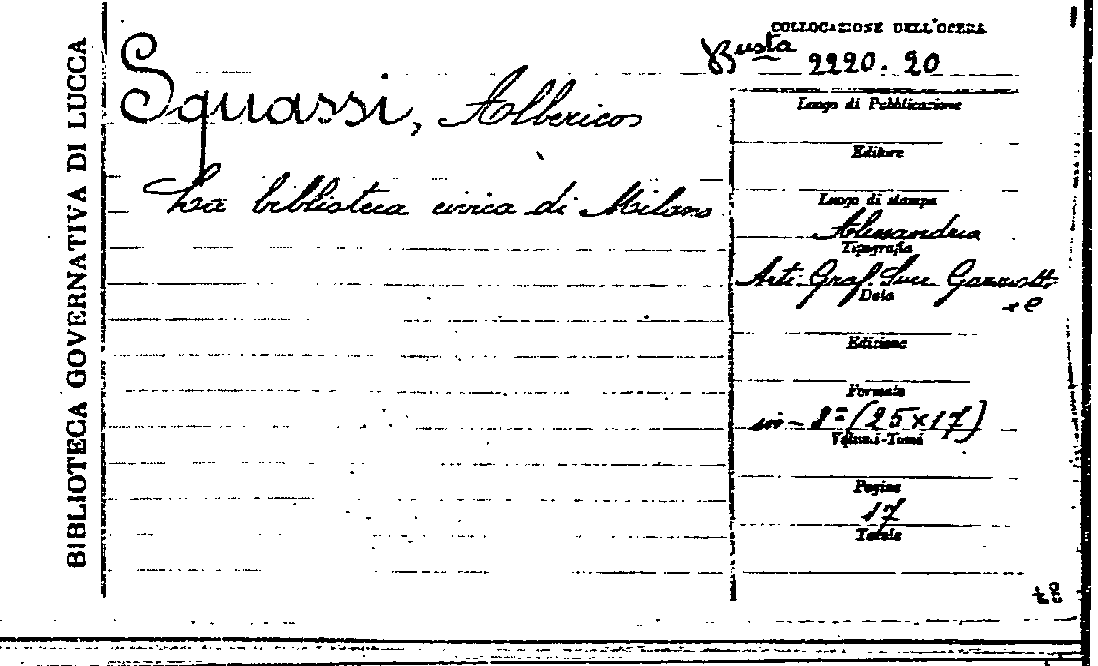 BIBLIOTECA GOVERNATIVA DI LUCCA
COLLOCAZIONE DELL'OPERA
Busta 2220.20
Squassi, Alberico
La biblioteca civica di Milano
Luogo di Pubblicazione
Editore
Luogo di stampa
Alessandria
Tipografia
Arti Graf. Succ. Gazzotti
e C
Data
Edizione
Formato
in-8º (25x17)
Volumi-Tomi
Pagine
17
Tavole